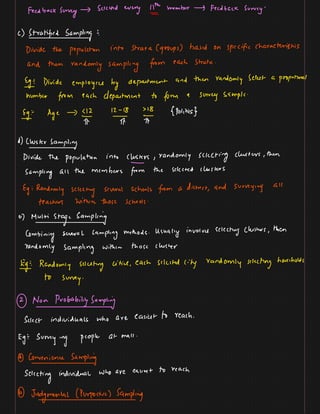 Feedback Survey → Selected every 11th member → Feedback Survey.
c) Stratified Sampling :
Divide the population into strata (groups) based on specific characteristics
and then randomly sampling from each strata.
Eg: Divide employees by department and then randomly select a proportional
number from each department to form a survey sample.
Eg: Age → <12 12-18 >18 {Politics}
d) Cluster Sampling
Divide the population into clusters, randomly selecting clusters, then
sampling all the members from the selected clusters
Eg: Randomly selecting several schools from a district, and surveying all
teachers within those schools.
e) Multi Stage Sampling
Combining several sampling methods. Usually involve selecting clusters, then
randomly sampling within those cluster
Eg: Randomly selecting cities, each selected city randomly selecting households
to survey.
② Non Probability Sampling
Select individuals who are easiest to reach.
Eg: Survey people at mall.
Convenience Sampling
Selecting individual who are easiest to reach
b) Judgmental (Purposive) Sampling